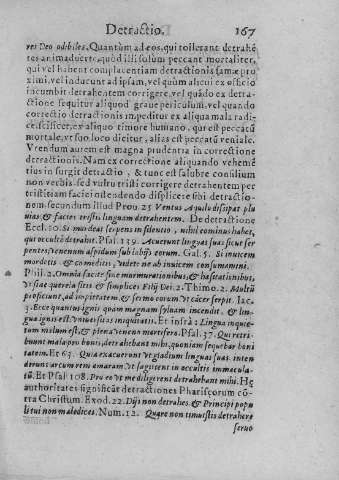 Detractio. 167
res Deo odibiles. Quantùm ad eos, qui tollerant detrahẽ
tes animaduerte, quòd illi solùm peccant mortaliter,
qui vel habent complacentiam detractionis famæ pro
ximi, vel inducunt ad ipsam, vel quùm alicui ex officio
incumbit detrahentem corrigere, vel quãdo ex detra-
ctione sequitur aliquod graue periculum, vel quando
correctio detractionis impeditur ex aliqua mala radi-
ce, scilicet, ex aliquo timore humano, qui est peccatũ
mortale, vt suo loco dicitur, aliàs est peccatũ veniale.
Vrendum autem est magna prudentia in correctione
detractionis. Nam ex correctione aliquando vehemẽ
tius insurgit detractio, & tunc est salubre consilium
non verbis, sed vultu tristi corrigere detrahentem per
tristitiam faciei ostendendo displicere sibi detractio-
nem, secundum illud Prou. 25 Ventus Aquilo dissipat plu
uias, & facies tristis linguam detrahentem. De detractione
Eccl. 10. Si mordeat serpens in silentio, nihil eo minus habet,
qui occultè detrahit. Psal. 139. Acuerunt linguas suas sicut ser
pentes, venenum aspidum sub labijs eorum. Gal. 5. Si inuicem
mordetis, & comeditis, videte ne ab inuicem consumamini.
Phil. 2. Omnia facite sine murmurationibus, & hæsitationibus,
vt sitis sine querela & simplices Filij Dei. 2. Thimo. 2. Multũ
proficiunt, ad impietatem, & sermo eorum vt cācer serpit. Iac.
3. Ecce quantus ignis quàm magnam syluam incendit, & lin-
gua ignis est. vniuersitas iniquitatis. Et infrà: Lingua inquie-
tum malum est, & plena veneno mortifero. Psal. 37. Qui retri-
bunt mala pro bonis, detrahebant mihi, quoniam sequebar boni
tatem. Et 63. Quia exacuerunt vt gladium linguas suas. inten
derunt arcum rem amaram vt sagittent in occultis immacula-
tũ. Et Psal. 108. Pro eo vt me diligerent detrahebant mihi. Hę
authoritates significãt detractiones Pharisęorum cō-
tra Christum. Exod. 22. Dijs non detrahes, & Principi popu
li tui non maledices. Num. 12. Quare non timuistis detrahere
seruo